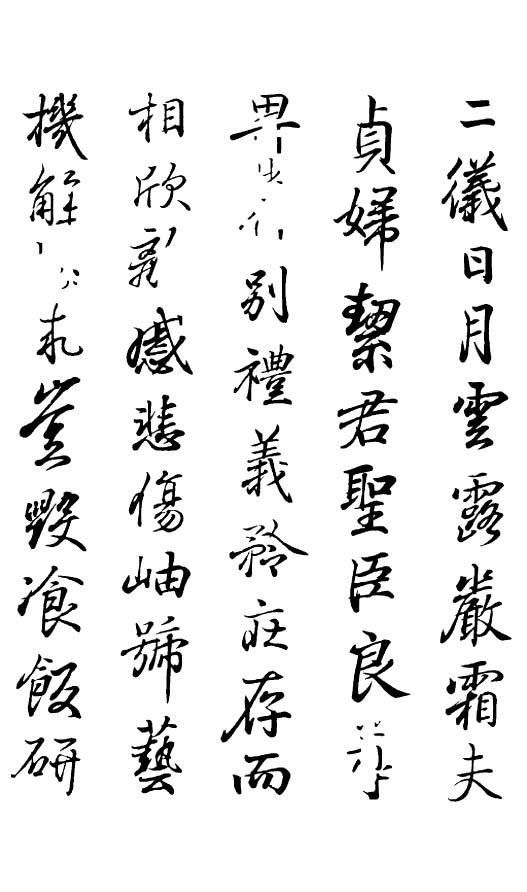 二儀日月雲露嚴霜夫
貞婦絜君聖臣良
別禮義矜庄存而
相欣憾悲傷岫號藝
機解豈毀飡飯研